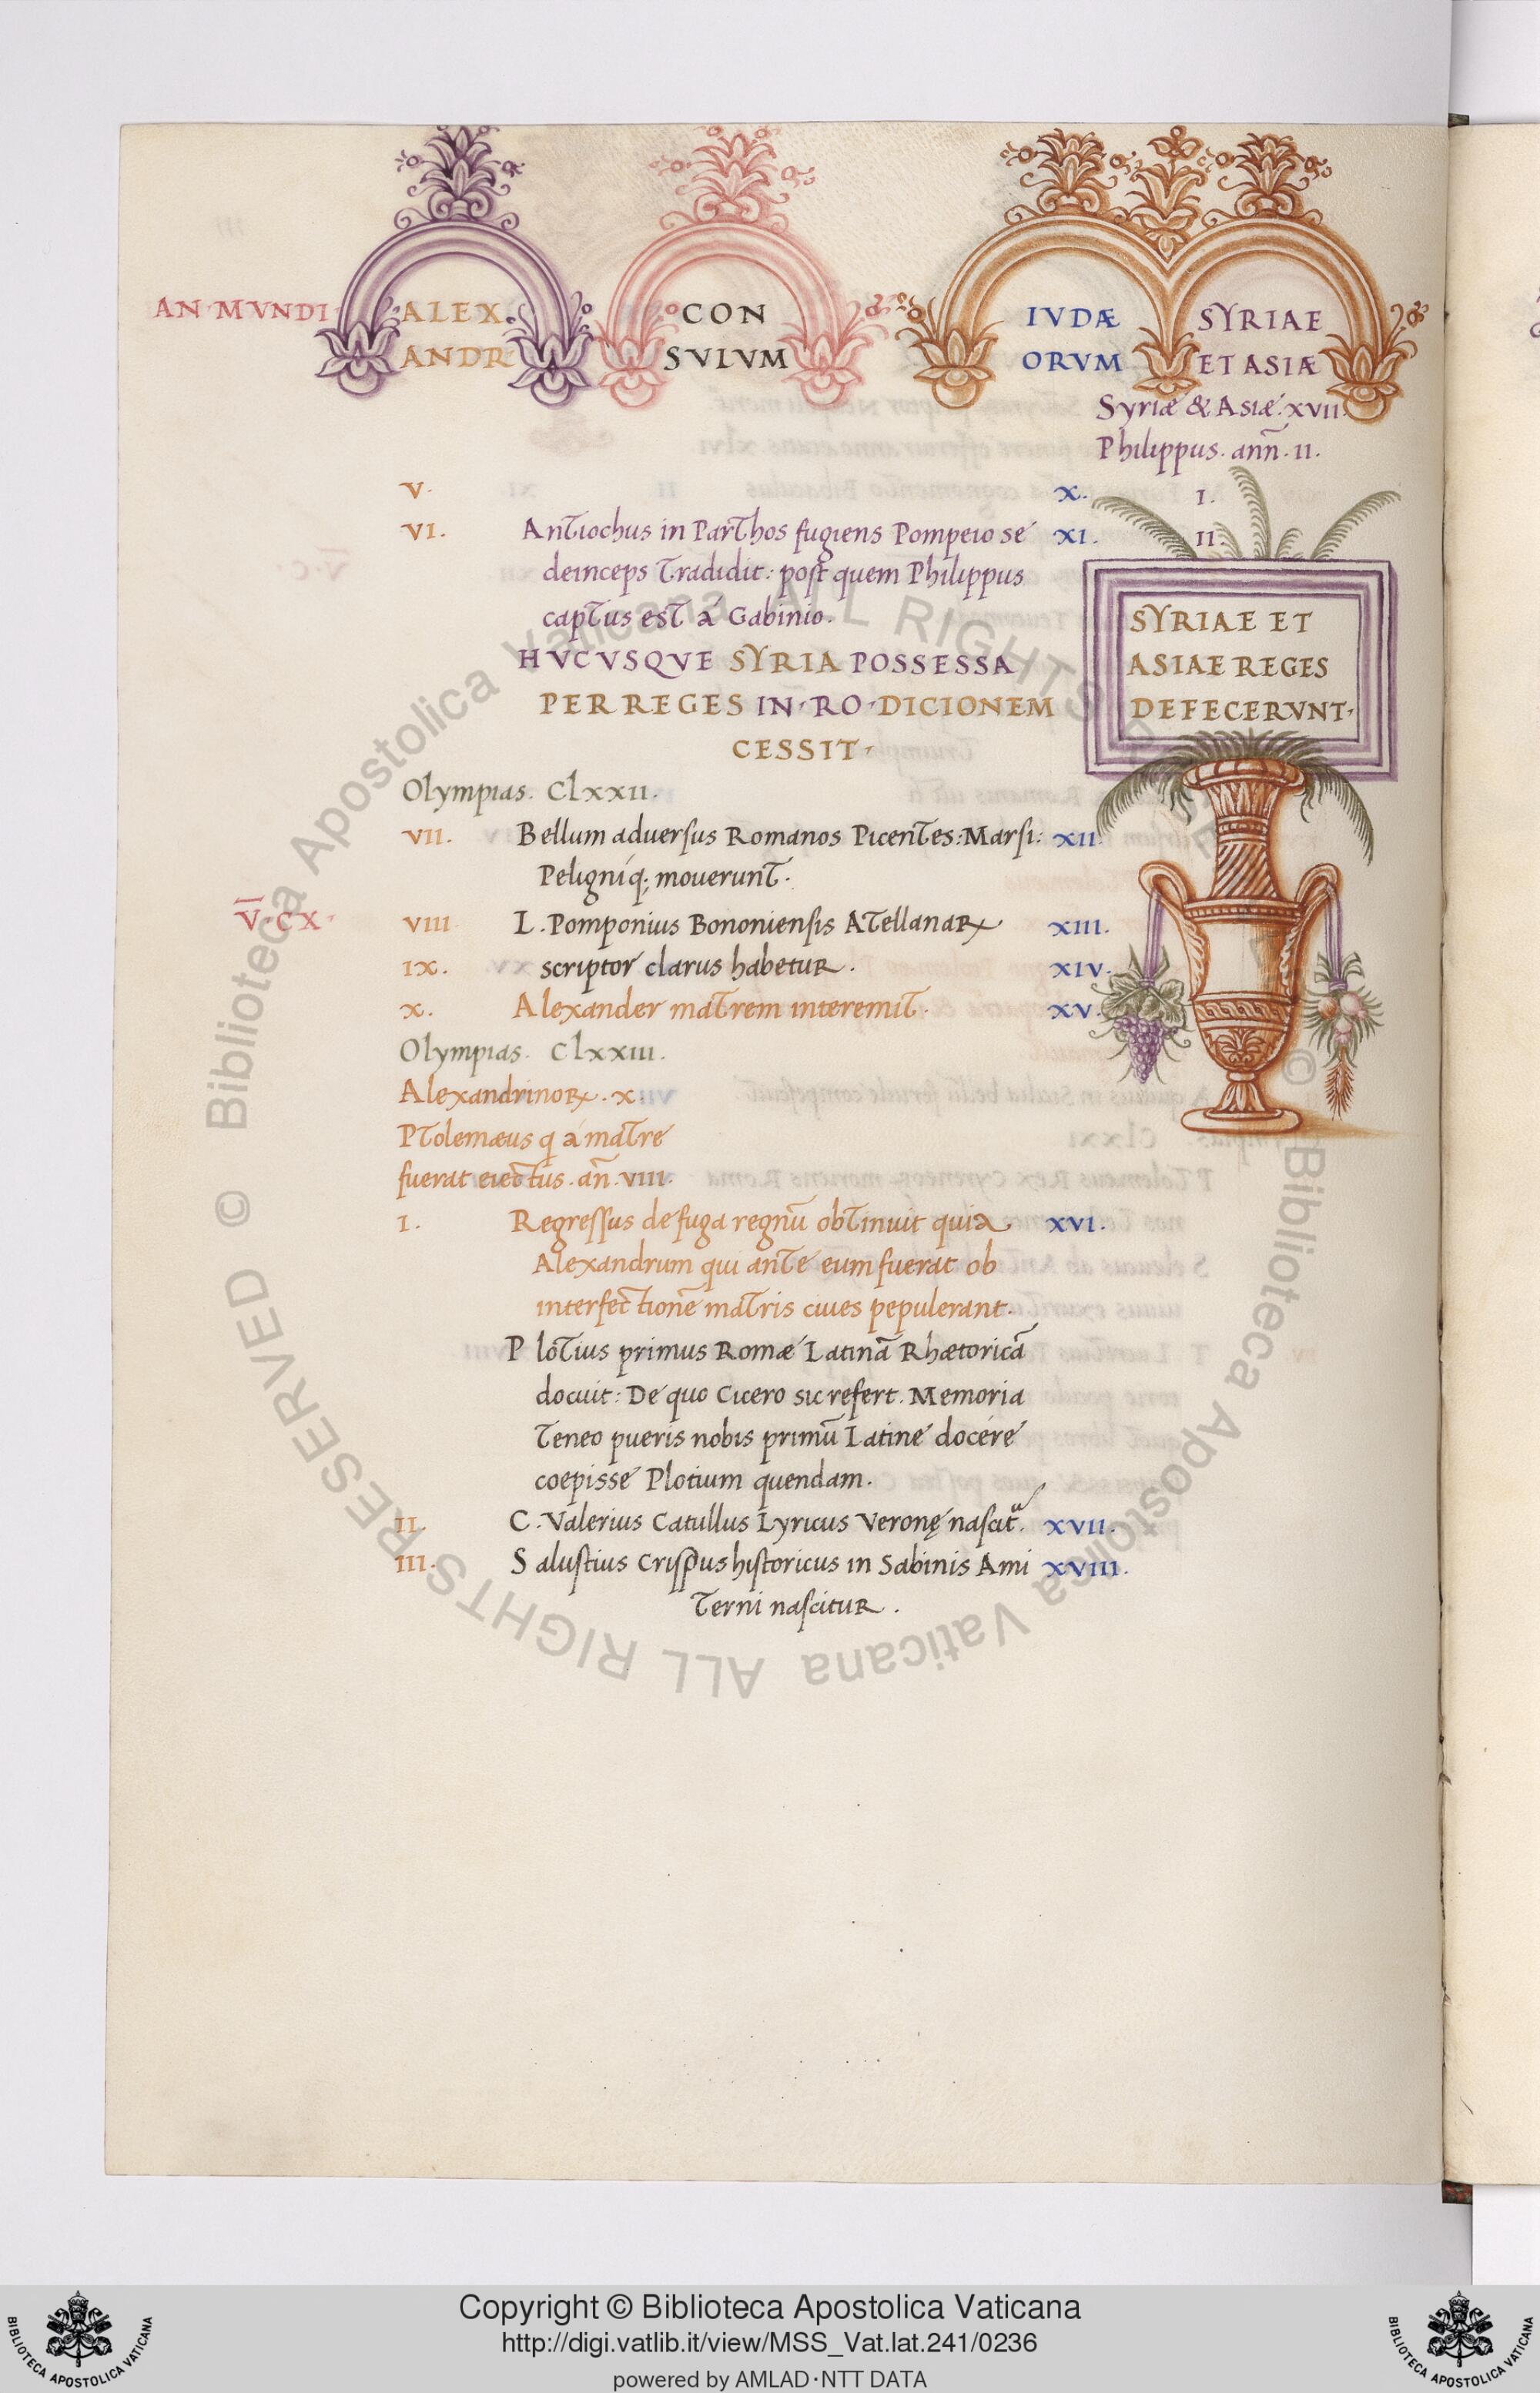 AN·MVNDI ALEX. CON IVDÆ SYRIAE
ANDR SVLVM ORVM ET ASIÆ
Syriæ & Asiæ. XVII.
Philippus. ann̄. II.
V. X. I.
VI. Antiochus in Parthos fugiens Pompeio se XI. II.
deinceps tradidit: post quem Philippus
captus est á Gabinio.
HVCVSQVE SYRIA POSSESSA
PER REGES IN·RO·DICIONEM
CESSIT·
SYRIAE ET
ASIAE REGES
DEFECERVNT·
Olympias. Clxxii.
VII. Bellum aduersus Romanos Picentes: Marsi: XII.
Peligniq; mouerunt.
V̅·CX· VIII L. Pomponius Bononiensis Atellanaꝝ XIII.
IX. scriptor clarus habetur. XIV.
X. Alexander matrem interemit. XV.
Olympias. Clxxiii.
Alexandrinoꝝ. X.
Ptolemæus q á matre
fuerat eiectus. an̄. VIII.
I. Regressus de fuga regnū obtinuit quia XVI.
Alexandrum qui ante eum fuerat ob
interfectionē matris ciues pepulerant.
Plotius primus Romæ Latinā Rhætoricā
docuit: De quo Cicero sic refert. Memoria
teneo pueris nobis primū Latine docére
coepisse Plotium quendam.
II. C. Valerius Catullus Lyricus Veronę nascit͛. XVII.
III. Salustius Crispus historicus in Sabinis Ami XVIII.
terni nascitur.
© Biblioteca Apostolica Vaticana ALL RIGHTS RESERVED © Biblioteca Apostolica Vaticana ALL RIGHTS RESERVED
Copyright © Biblioteca Apostolica Vaticana
http://digi.vatlib.it/view/MSS_Vat.lat.241/0236
powered by AMLAD·NTT DATA
BIBLIOTECA APOSTOLICA VATICANA
BIBLIOTECA APOSTOLICA VATICANA